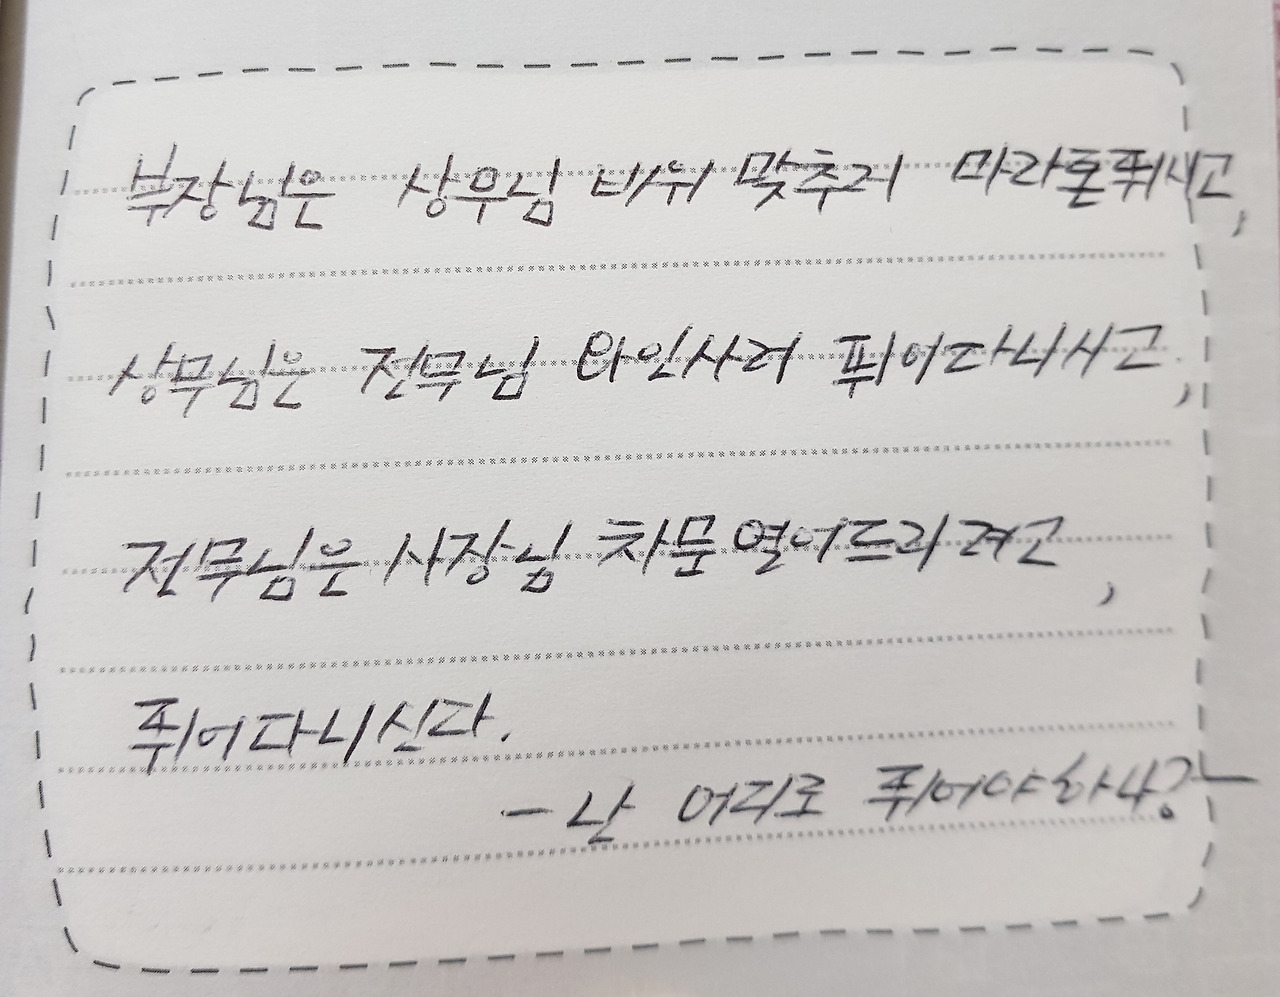 부장님은 상무님 비위 맞추러 마라톤뛰시고,
상무님은 전무님 와인사러 뛰어다니시고,
전무님은 사장님 차문 열어드리려고,
뛰어다니신다.
- 난 어디로 뛰어야하나? -